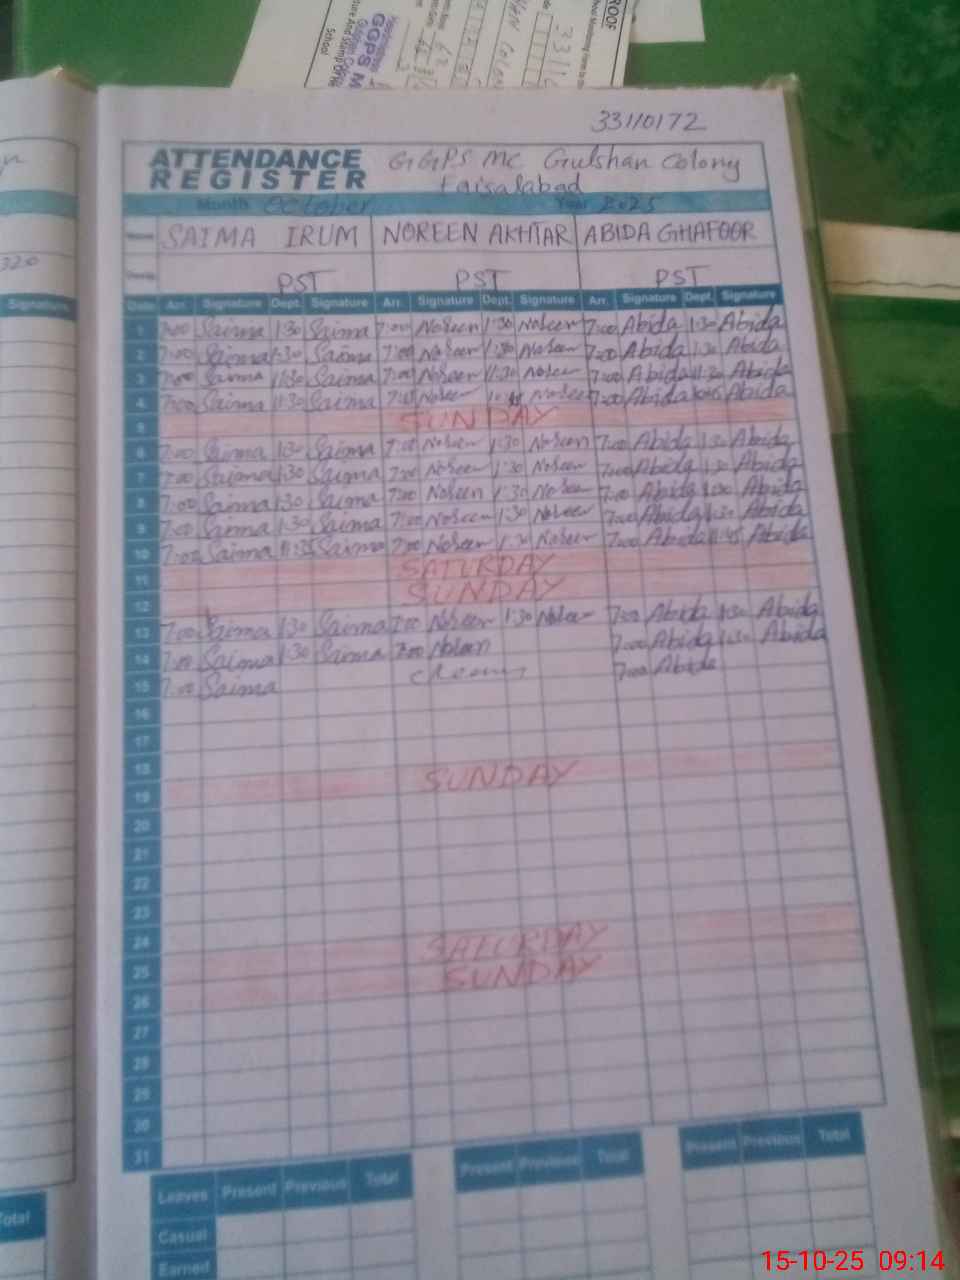 ROOF
GGPS M
School
33110172
ATTENDANCE REGISTER GGPS MC Gulshan Colony
Faisalabad
Month October Year 2025
Name SAIMA IRUM NOREEN AKHTAR ABIDA GHAFOOR
PST PST PST
Signature Date Arr. Signature Dept. Signature Arr. Signature Dept. Signature Arr. Signature Dept. Signature
1 7:00 Saima 1:30 Saima 7:00 Noreen 1:30 Noreen 7:00 Abida 1:30 Abida
2 7:00 Saima 1:30 Saima 7:00 Noreen 1:30 Noreen 7:00 Abida 1:30 Abida
3 7:00 Saima 11:30 Saima 7:00 Noreen 11:30 Noreen 7:00 Abida 11:30 Abida
4 7:00 Saima 11:30 Saima 7:00 Noreen Noreen 7:00 Abida Abida
5 SUNDAY
6 7:00 Saima 1:30 Saima 7:00 Noreen 1:30 Noreen 7:00 Abida 1:30 Abida
7 7:00 Saima 1:30 Saima 7:00 Noreen 1:30 Noreen 7:00 Abida 1:30 Abida
8 7:00 Saima 1:30 Saima 7:00 Noreen 1:30 Noreen 7:00 Abida 1:30 Abida
9 7:00 Saima 1:30 Saima 7:00 Noreen 1:30 Noreen 7:00 Abida 1:30 Abida
10 7:00 Saima Saima 7:00 Noreen 1:30 Noreen 7:00 Abida 11:45 Abida
11 SATURDAY
12 SUNDAY
13 7:00 Saima 1:30 Saima 7:00 Noreen 1:30 Noreen 7:00 Abida 1:30 Abida
14 7:00 Saima 1:30 Saima 7:00 Noreen 7:00 Abida 1:30 Abida
15 7:00 Saima 7:00 Abida
16
17
18
19 SUNDAY
20
21
22
23
24
25 SATURDAY
26 SUNDAY
27
28
29
30
31
Leaves Present Previous Total Present Previous Total Present Previous Total
Casual
Earned
Total
15-10-25 09:14